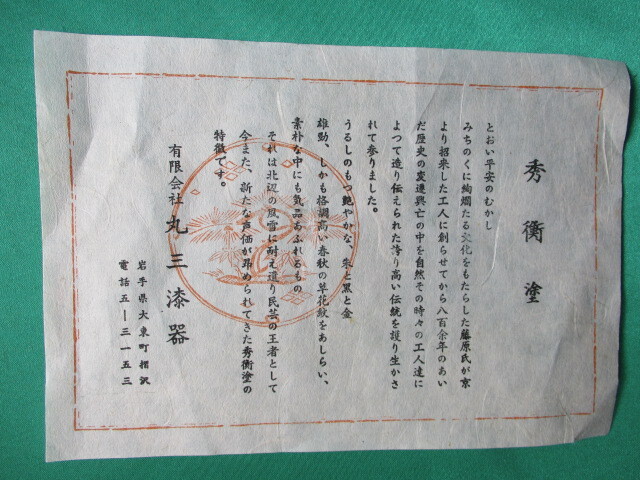 秀衡塗
とおい平安のむかし
みちのくに絢爛たる文化をもたらした藤原氏が京
より招来した工人に創らせてから八百余年のあい
だ歴史の変遷興亡の中を自然その時々の工人達に
よつて造り伝えられた誇り高い伝統を護り生かさ
れて参りました。
うるしのもつ艶やかな、朱と黒と金
雄勁、しかも格調高い春秋の草花紋をあしらい、
素朴な中にも気品あふれるもの
それは北辺の風雪に耐え還り民芸の王者として
今また、新たな声価が昂められてきた秀衡塗の
特徴です。
有限会社 丸三漆器
岩手県大東町摺沢
電話五―三一五三